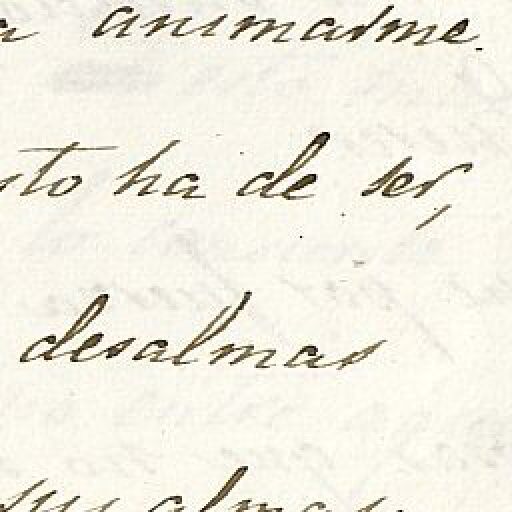 a animarme.
sto ha de ser,
desalmas
sus almas